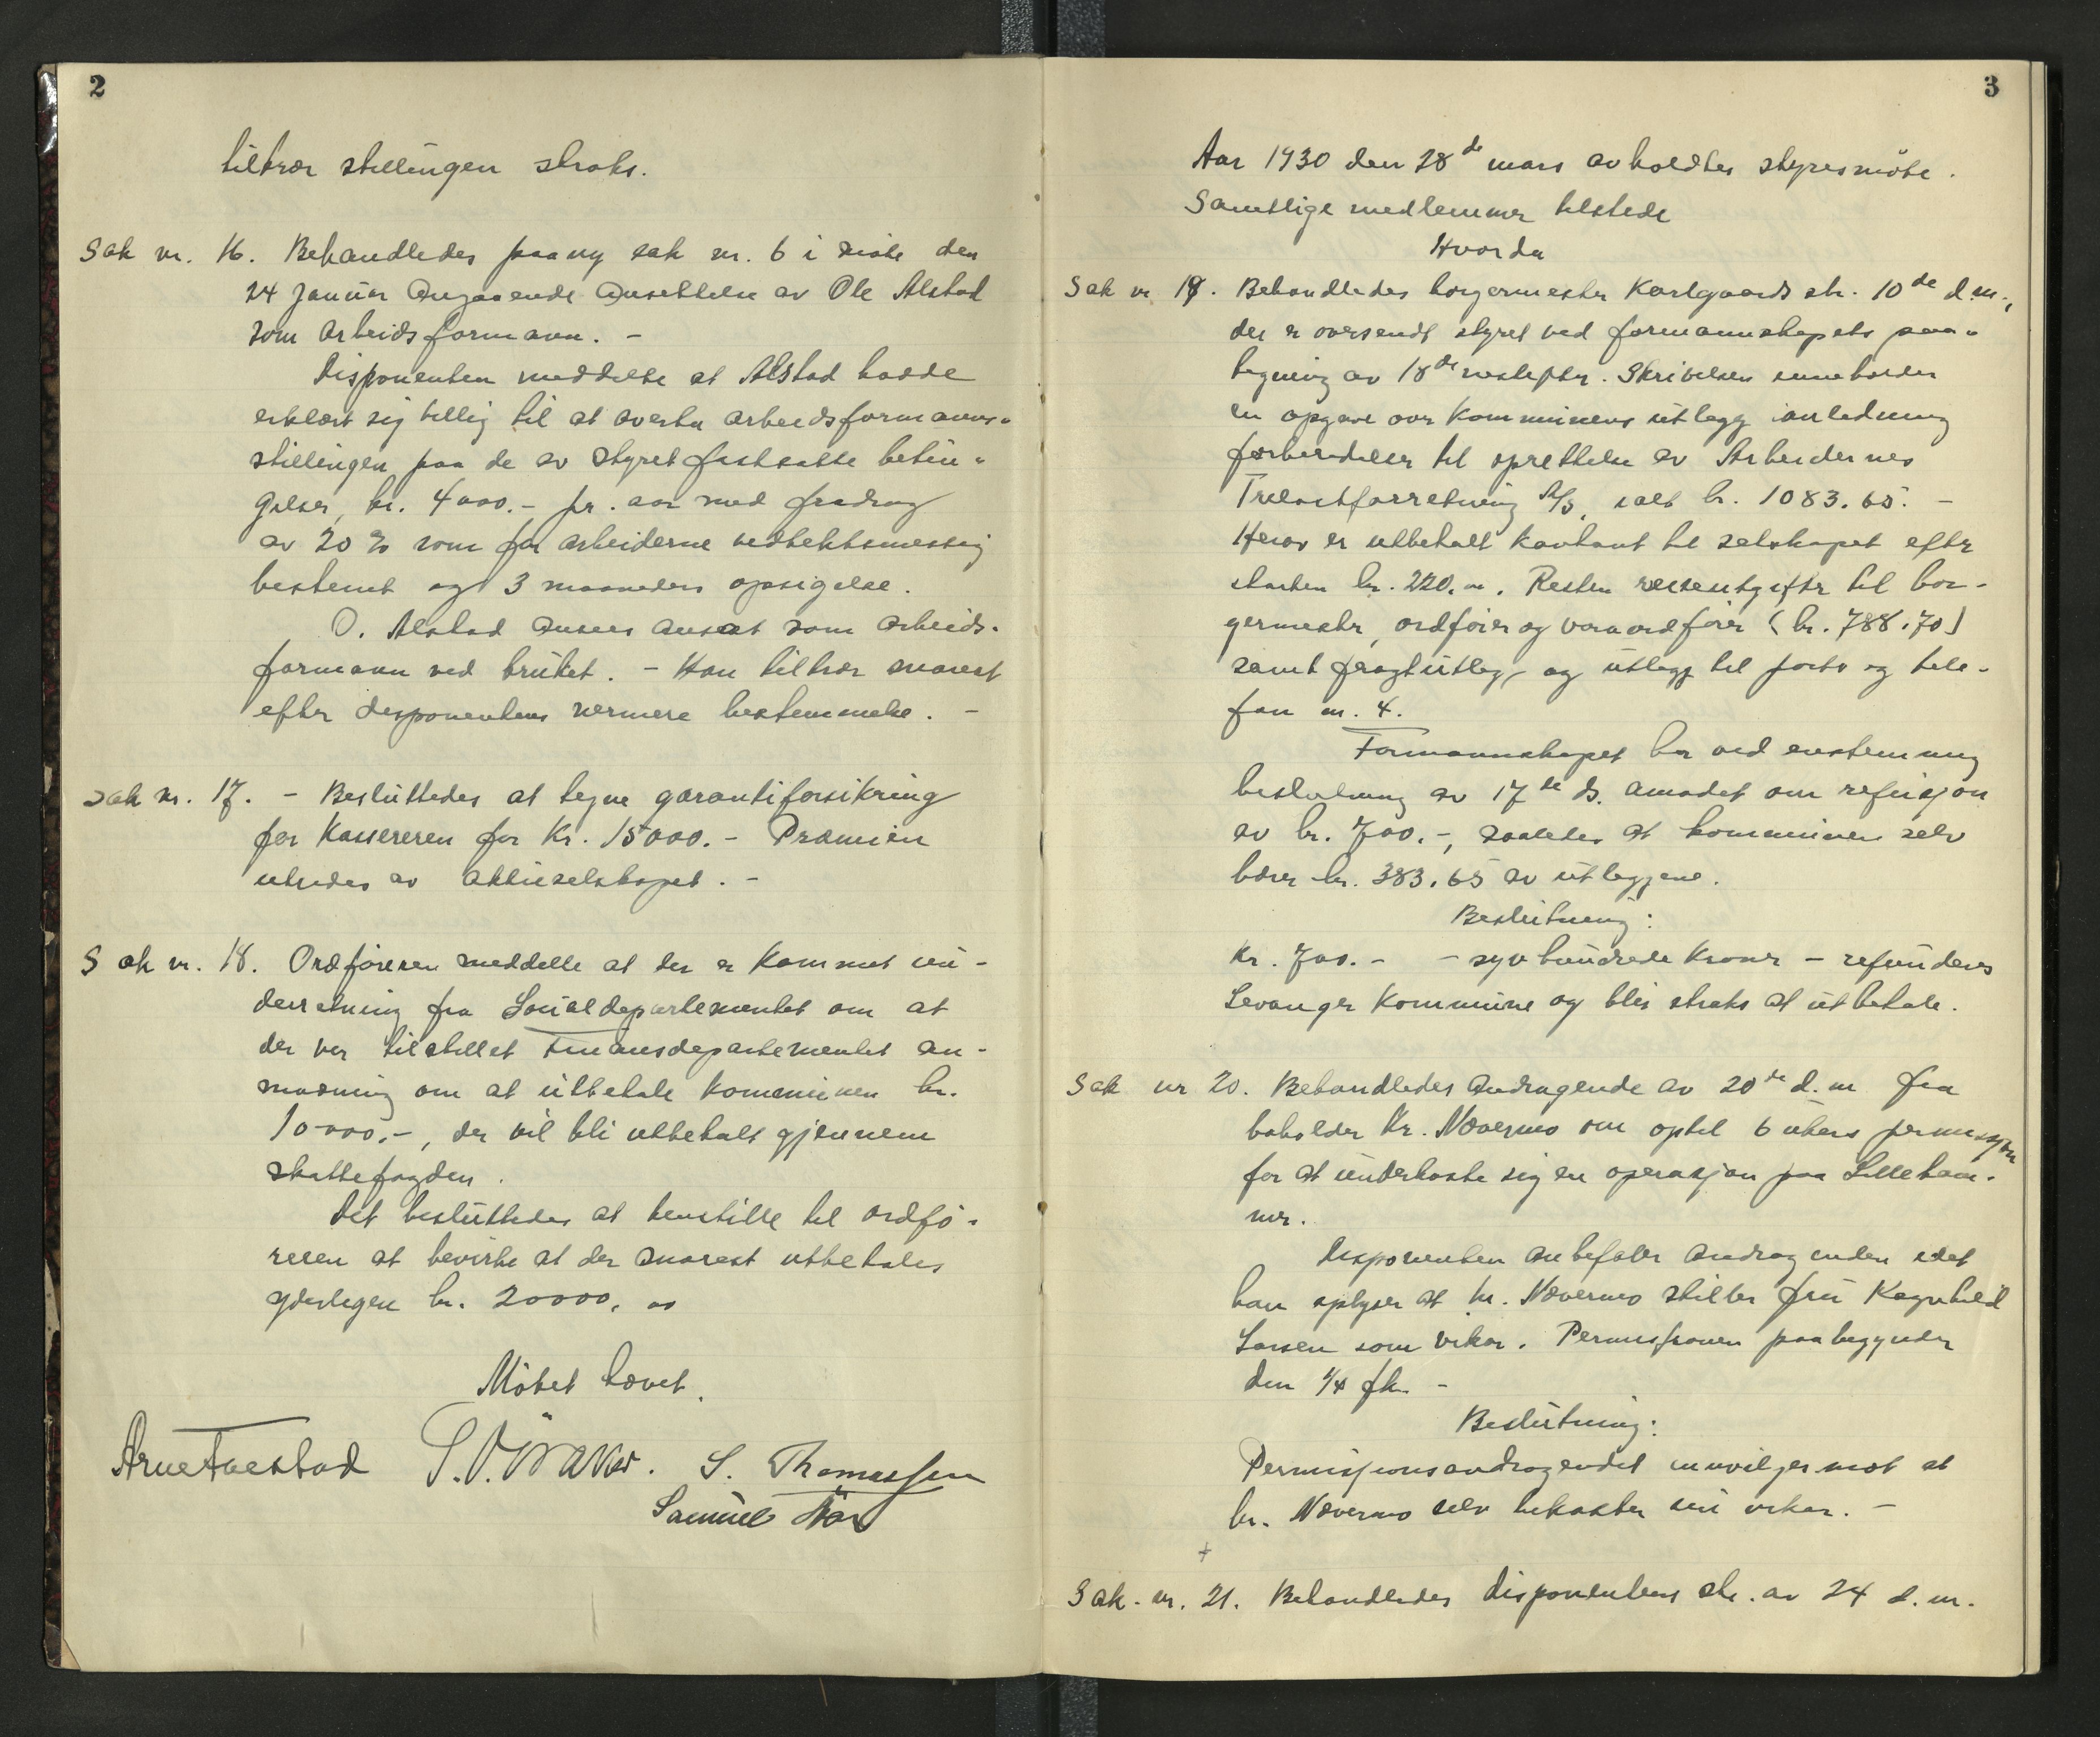 2
tiltrær stillingen straks.
Sak nr. 16. Behandledes paany sak nr. 6 i møte den
24 januar angaaende ansettelse av Ole Alstad
som arbeidsformann. -
Disponenten meddelte at Alstad hadde
erklært sig villig til at overta arbeidsformanns-
stillingen paa de av styret fastsatte betin-
gelser, kr. 4000.- pr. aar med fradrag
av 20 % som for arbeiderne vedtektsmessig
bestemt og 3 maaneders opsigelse.
O. Alstad ansees ansat som arbeids-
formann ved bruket. - Han tiltrær snarest
efter disponentens nærmere bestemmelse. -
Sak nr. 17. - Besluttedes at tegne garantiforsikring
for Kassereren for Kr. 15000.- Præmien
utredes av aktieselskapet. -
Sak nr. 18. Ordføreren meddelte at der er kommet un-
derretning fra Socialdepartementet om at
der var tilstillet Finansdepartementet an-
modning om at utbetale kommunen kr.
10000.-, der vil bli utbetalt gjennem
skattefogden.
Det besluttedes at henstille til ordfø-
reren at bevirke at der snarest utbetales
yderligere kr. 20000,00
Møtet hævet.
Arne Aaestad S. Thomassen
Samuel
3
Aar 1930 den 28de mars avholdtes styresmøte.
Samtlige medlemmer tilstede
Hvorda
Sak nr 19. Behandledes borgermester Karlgaards skr. 10de d.m.,
der er oversendt styret ved formannskapets paa-
tegning av 18de næstefter. Skrivelsen inneholder
en opgave over kommunens utlegg i anledning
forberedelser til oprettelse av Arbeidernes
Trelastforretning A/S, ialt kr. 1083.65. -
Herav er utbetalt kontant til selskapet efter
starten kr. 220.00. Resten reiseutgifter til bor-
germester, ordfører og varaordfører (kr. 788.70)
samt fragtutlegg og utlegg til porto og tele-
fon m. 4.
Formannskapet har ved enstemmig
beslutning av 17de ds. anmodet om refusjon
av kr. 700.-, saaledes at kommunen selv
bærer kr. 383.65 av utleggene.
Beslutning:
Kr. 700.- - syv hundrede kroner - refunderes
Levanger kommune og blir straks at utbetale.
Sak nr 20. Behandledes andragende av 20de d.m fra
bokholder Kr. Nævermo om optil 6 ukers permisjon
for at underkaste sig en operasjon paa Lilleham-
mer.
Disponenten anbefaler andragenden idet
han oplyser at hr. Nævermo stiller fru Ragnhild
Larsen som vikar. Permisjonen paabegynder
den 1/4 fk. -
Beslutning:
Permisjonsandragendet innvilges mot at
hr. Nævermo selv bekoster sin vikar. -
+
Sak. nr. 21. Behandledes disponentens skr. av 24 d.m.